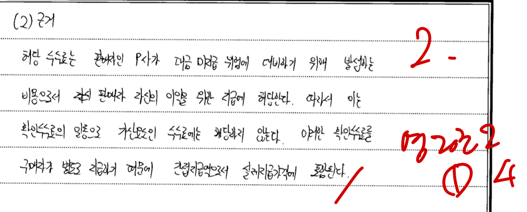 (2) 근거
해당 수수료는 판매자인 P사가 대금 미지급 위험에 대비하기 위해 발생하는
비용으로서 판매자 자신의 이익을 위한 지급에 해당한다. 따라서 이는
확인수수료의 일종으로 가산요소인 수수료에는 해당하지 않는다. 이러한 확인수수료를
구매자가 별도로 지급하기 때문에 간접지급액으로서 실제지급가격에 포함된다.
2.
① 4